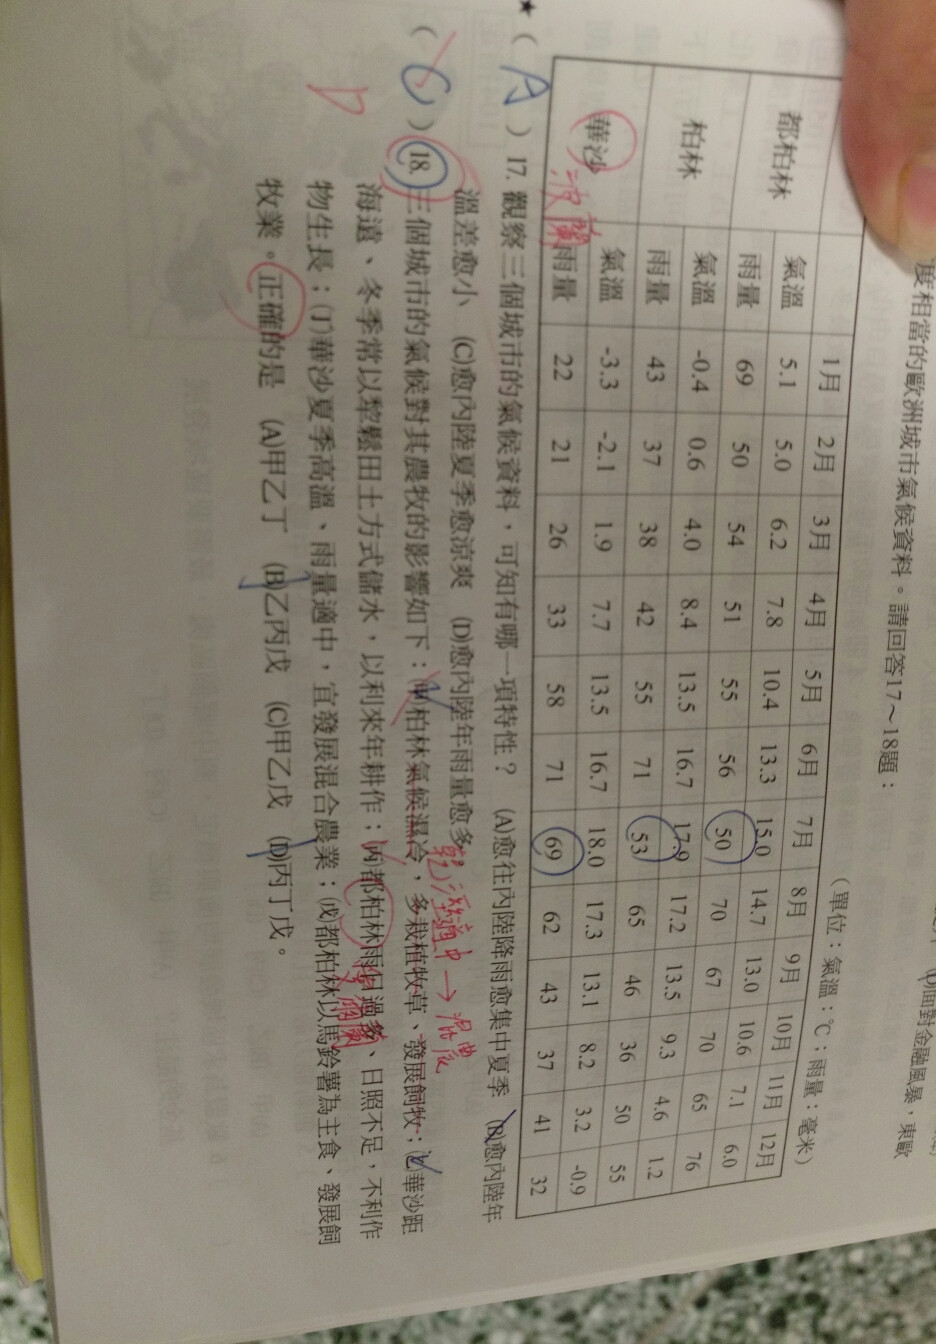 度相當的歐洲城市氣候資料。請回答17～18題：
(單位：氣溫：℃；雨量：毫米)
1月 2月 3月 4月 5月 6月 7月 8月 9月 10月 11月 12月
都柏林 氣溫 5.1 5.0 6.2 7.8 10.4 13.3 15.0 14.7 13.0 10.6 7.1 6.0
雨量 69 50 54 51 55 56 50 70 67 70 65 76
柏林 氣溫 -0.4 0.6 4.0 8.4 13.5 16.7 17.9 17.2 13.5 9.3 4.6 1.2
雨量 43 37 38 42 55 71 53 65 46 36 50 55
華沙 氣溫 -3.3 -2.1 1.9 7.7 13.5 16.7 18.0 17.3 13.1 8.2 3.2 -0.9
波蘭 雨量 22 21 26 33 58 71 69 62 43 37 41 32
★( A ) 17. 觀察三個城市的氣候資料，可知有哪一項特性？ (A)愈往內陸降雨愈集中夏季 (B)愈內陸年
溫差愈小 (C)愈內陸夏季愈涼爽 (D)愈內陸年雨量愈多
( C ) 18. 三個城市的氣候對其農牧的影響如下：(甲)柏林氣候濕冷，多栽植牧草、發展飼牧；(乙)華沙距
D
海遠、冬季常以犁鬆田土方式儲水，以利來年耕作；(丙)都柏林雨日過多、日照不足，不利作
物生長；(丁)華沙夏季高溫、雨量適中，宜發展混合農業；(戊)都柏林以馬鈴薯為主食、發展飼
牧業。正確的是 (A)甲乙丁 (B)乙丙戊 (C)甲乙戊 (D)丙丁戊。